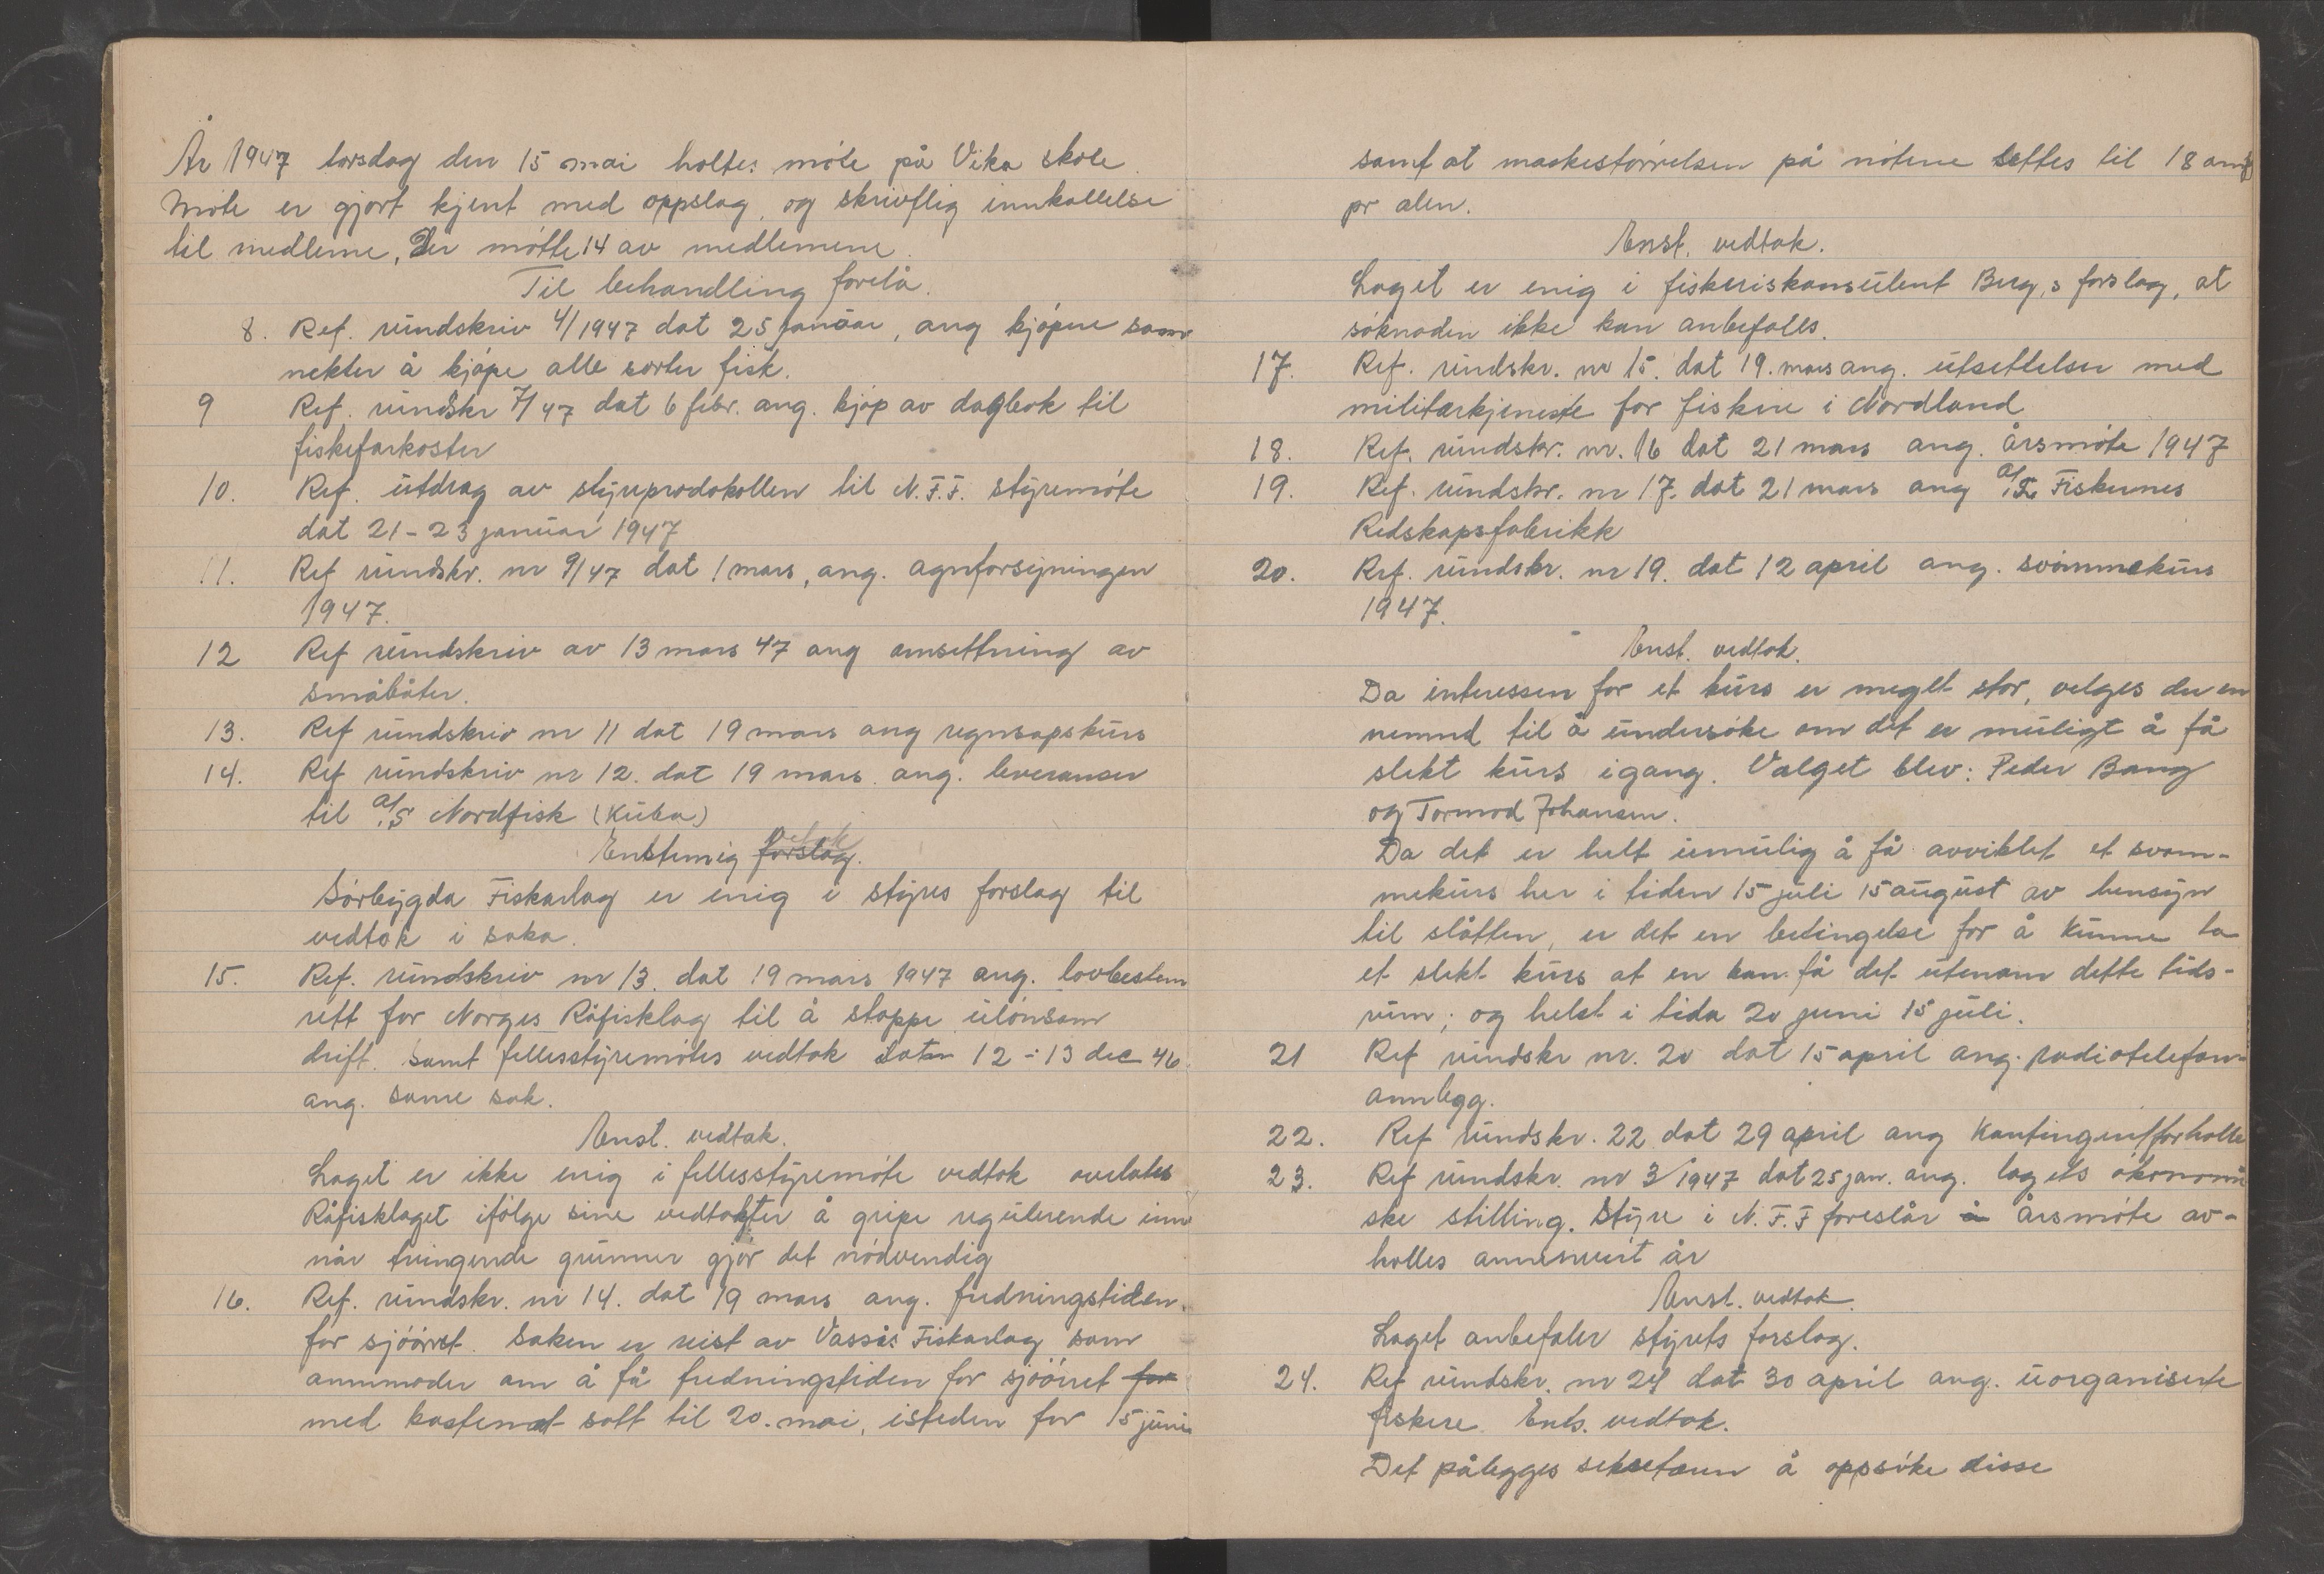 År 1947 torsdag den 15 mai holtes møte på Vika skole.
Møte er gjort kjent med oppslag, og skrivflig innkallelse
til medleme, Der møtte 14 av medlemene.
Til behandling forelå.
8. Ref. rundskriv 4/1947 dat 25 januar, ang kjøpere som
nekter å kjøpe alle sorter fisk.
9 Ref. rundskr 7/47 dat 6 febr. ang. kjøp av dagbok til
fiskefarkoster
10. Ref. utdrag av styreprotokollen til N.F.F. styremøte
dat 21-23 januar 1947
11. Ref rundskr. nr 9/47 dat 1 mars, ang. agnforsyningen
1947.
12 Ref rundskriv av 13 mars 47 ang omsettning av
småbåter.
13. Ref rundskriv nr 11 dat 19 mars ang regnsapskurs
14. Ref rundskriv nr 12. dat 19 mars. ang. leveranser
til a/s Nordfisk (Kuba)
Enstemig forslag. vetak
Sørbygda Fiskarlag er enig i styres forslag til
vedtok i saka.
15. Ref. rundskriv nr 13. dat 19 mars 1947 ang. lovbestem
rett for Norges Råfisklag til å stoppe ulønsom
drift. samt fellesstyremøtes vedtak daten 12-13 dec 46.
ang. same sak.
Enst. vedtak.
Laget er ikke enig i fellesstyremøte vedtok overlates
Råfisklaget ifølge sine vedtakter å gripe regulerende inn
når tvingende grunner gjør det nødvendig
16. Ref. rundskr. nr 14. dat 19 mars ang. fredningstiden.
for sjøørret. Saken er reist av Vassås Fiskarlag som
annmoder om å få fredningstiden for sjøørret for
med kastenot satt til 20. mai, isteden for 15 juni
samt at maskestørrelsen på nøtene settes til 18 omf
pr alen.
Enst. vedtok.
Laget er enig i fiskeriskonsulent Berg,s forslag, at
søknaden ikke kan anbefalls.
17. Ref. rundskr. nr 15. dat 19. mars ang. utsettelser med
militærkjeneste for fiskere i Nordland
18. Ref. rundskr. nr. 16 dat 21 mars ang. årsmøte 1947
19. Ref. rundskr. nr 17. dat 21 mars ang a/L Fiskernes
Redskapsfabrikk
20. Ref. rundskr. nr 19. dat 12 april ang. svømmekurs
1947.
Enst. vedtok.
Da interessen for et kurs er meget stor, velges der en
nemnd til å undersøke om det er muligt å få
slekt kurs igang. Valget blev: Peder Bang
og Tormod Johansen.
Da det er helt umulig å få avviklet et svøm-
mekurs her i tiden 15 juli 15 august av hensyn
til slåtten, er det en betingelse for å kunne ta
et slekt kurs at en kan få det utenom dette tids-
rum; og helst i tida 20 juni 15 juli.
21 Ref rundskr nr. 20 dat 15 april ang. radiotelefon-
annlegg.
22. Ref rundskr. 22 dat 29 april ang Kontingentforholle
23. Ref rundskr. nr 3/1947 dat 25 jan. ang. lagets økonomi
ske stilling. Styre i N.F.F foreslår å årsmøte av-
holles annenvert år
Enst. vedtok.
Laget anbefaler styrets forslag.
24. Ref rundskr. nr 24 dat 30 april ang. uorganiserte
fiskere Ents. vedtok.
Det pålegges sekretæren å oppsøke disse